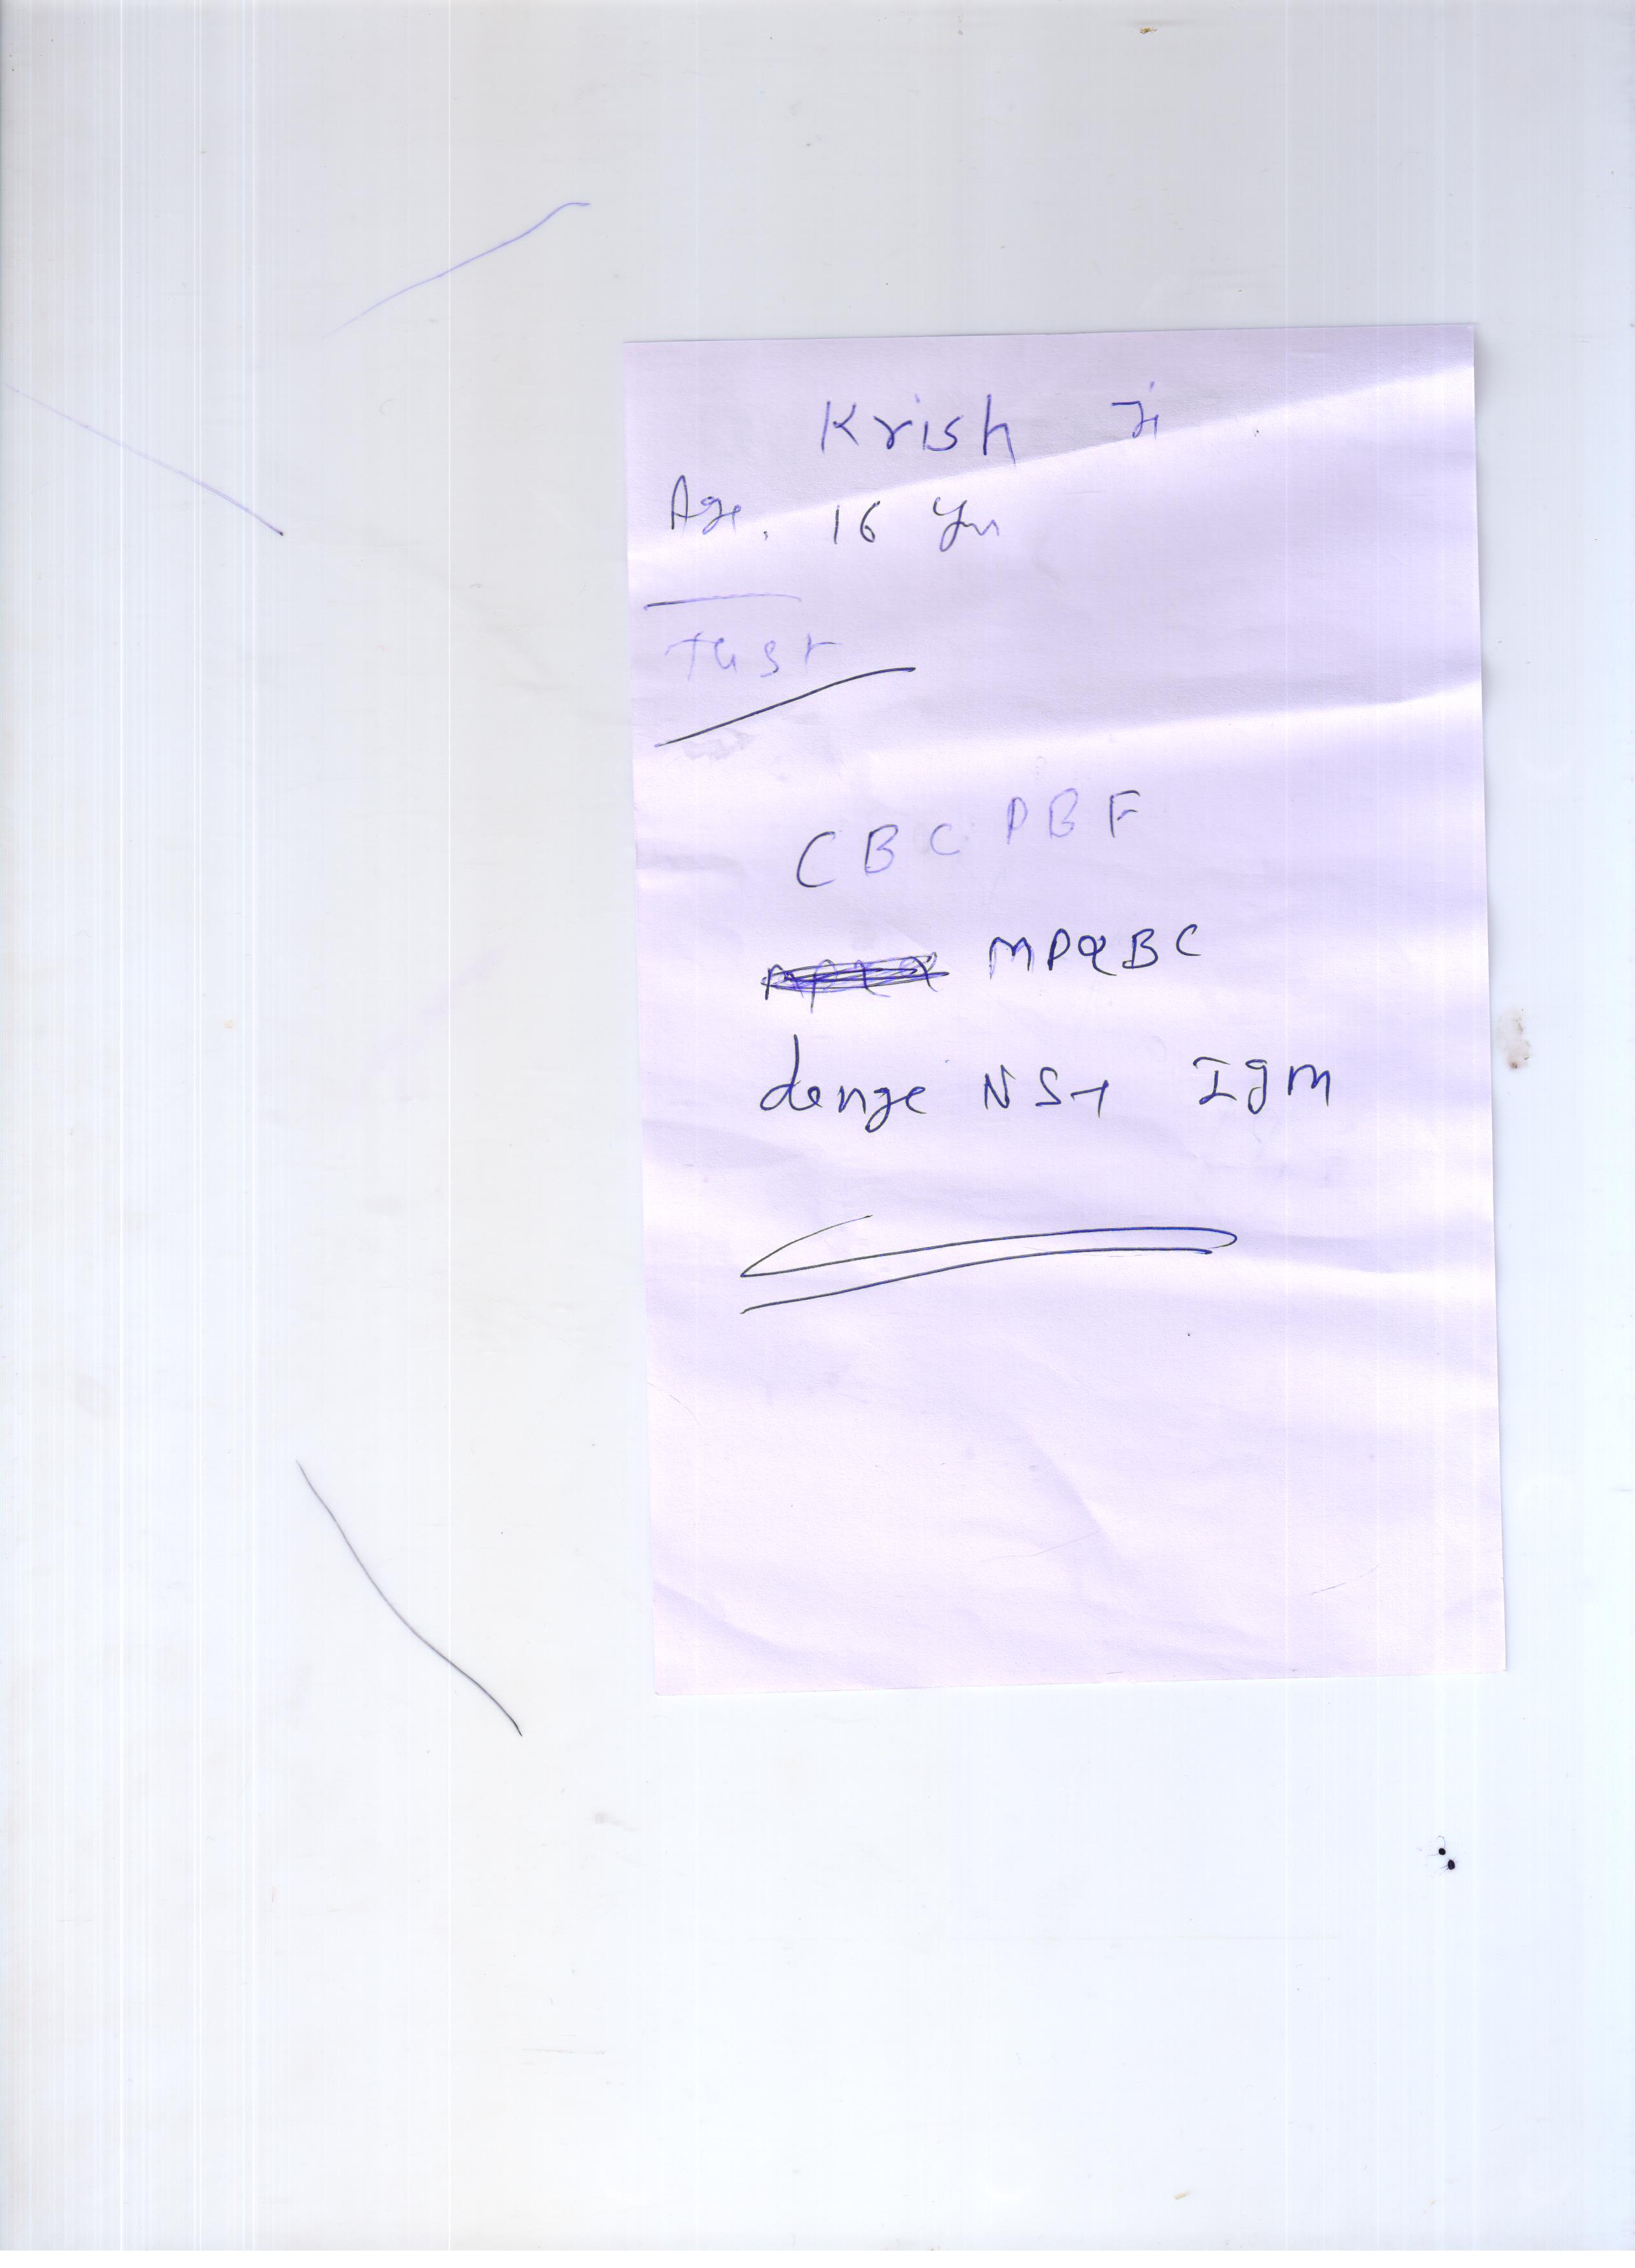 Krish Ji
Age. 16 Yrs
Test
CBC PBF
MPQBC
denge NS1 IgM